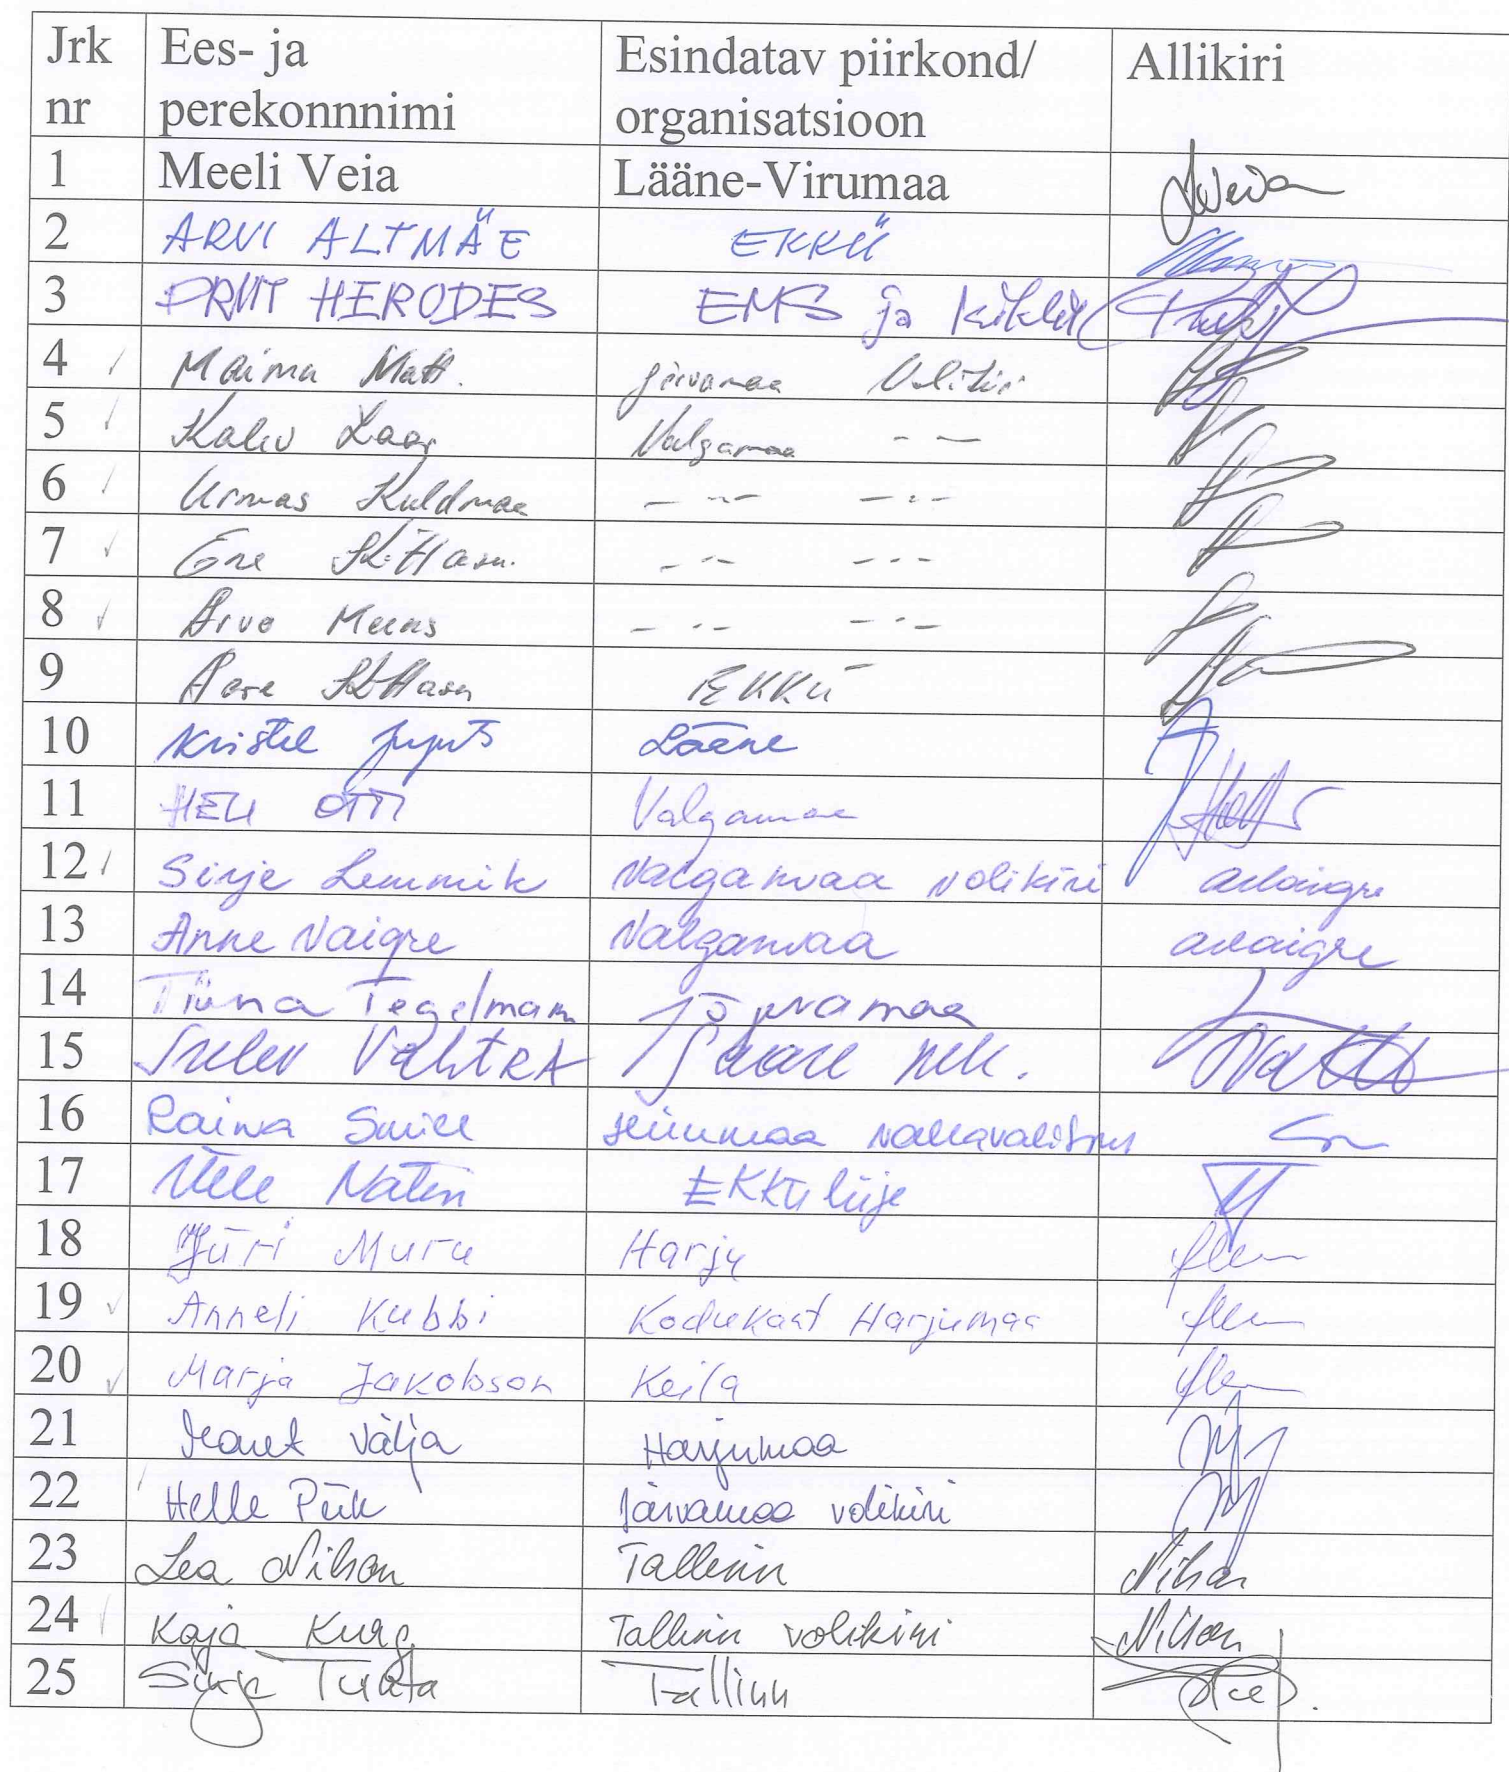 Jrk nr Ees- ja perekonnnimi Esindatav piirkond/ organisatsioon Allikiri
1 Meeli Veia Lääne-Virumaa
2 ARVI ALTMÄE EKKÜ
3 PRIIT HERODES EMS ja
4 Maima Matt. Järvamaa Volikiri
5 Kalev Laar Valgamaa - —
6 Urmas Kuldmaa
7 Ene
8 Arvo
9 EKKÜ
10 Kristel Lääne
11 HELI OTTI Valgamaa
12 Sirje Lemmik Valgamaa volikiri avaigre
13 Anne Vaigre Valgamaa avaigre
14 Tiina Tegelmann Järvamaa
15 Sulev VAHTRA Saare
16 Hiiumaa vallavalitsus
17 Ülle EKKÜ liije
18 Jüri Muru Harju
19 Anneli Kubbi Kodukant Harjumaa
20 Marja Jakobson Keila
21 Välja Harjumaa
22 Helle Piik Järvamaa volikiri
23 Lea Nilson Tallinn Nilson
24 Kaja Kurg Tallinn volikiri Nilson
25 Sirje Tallinn